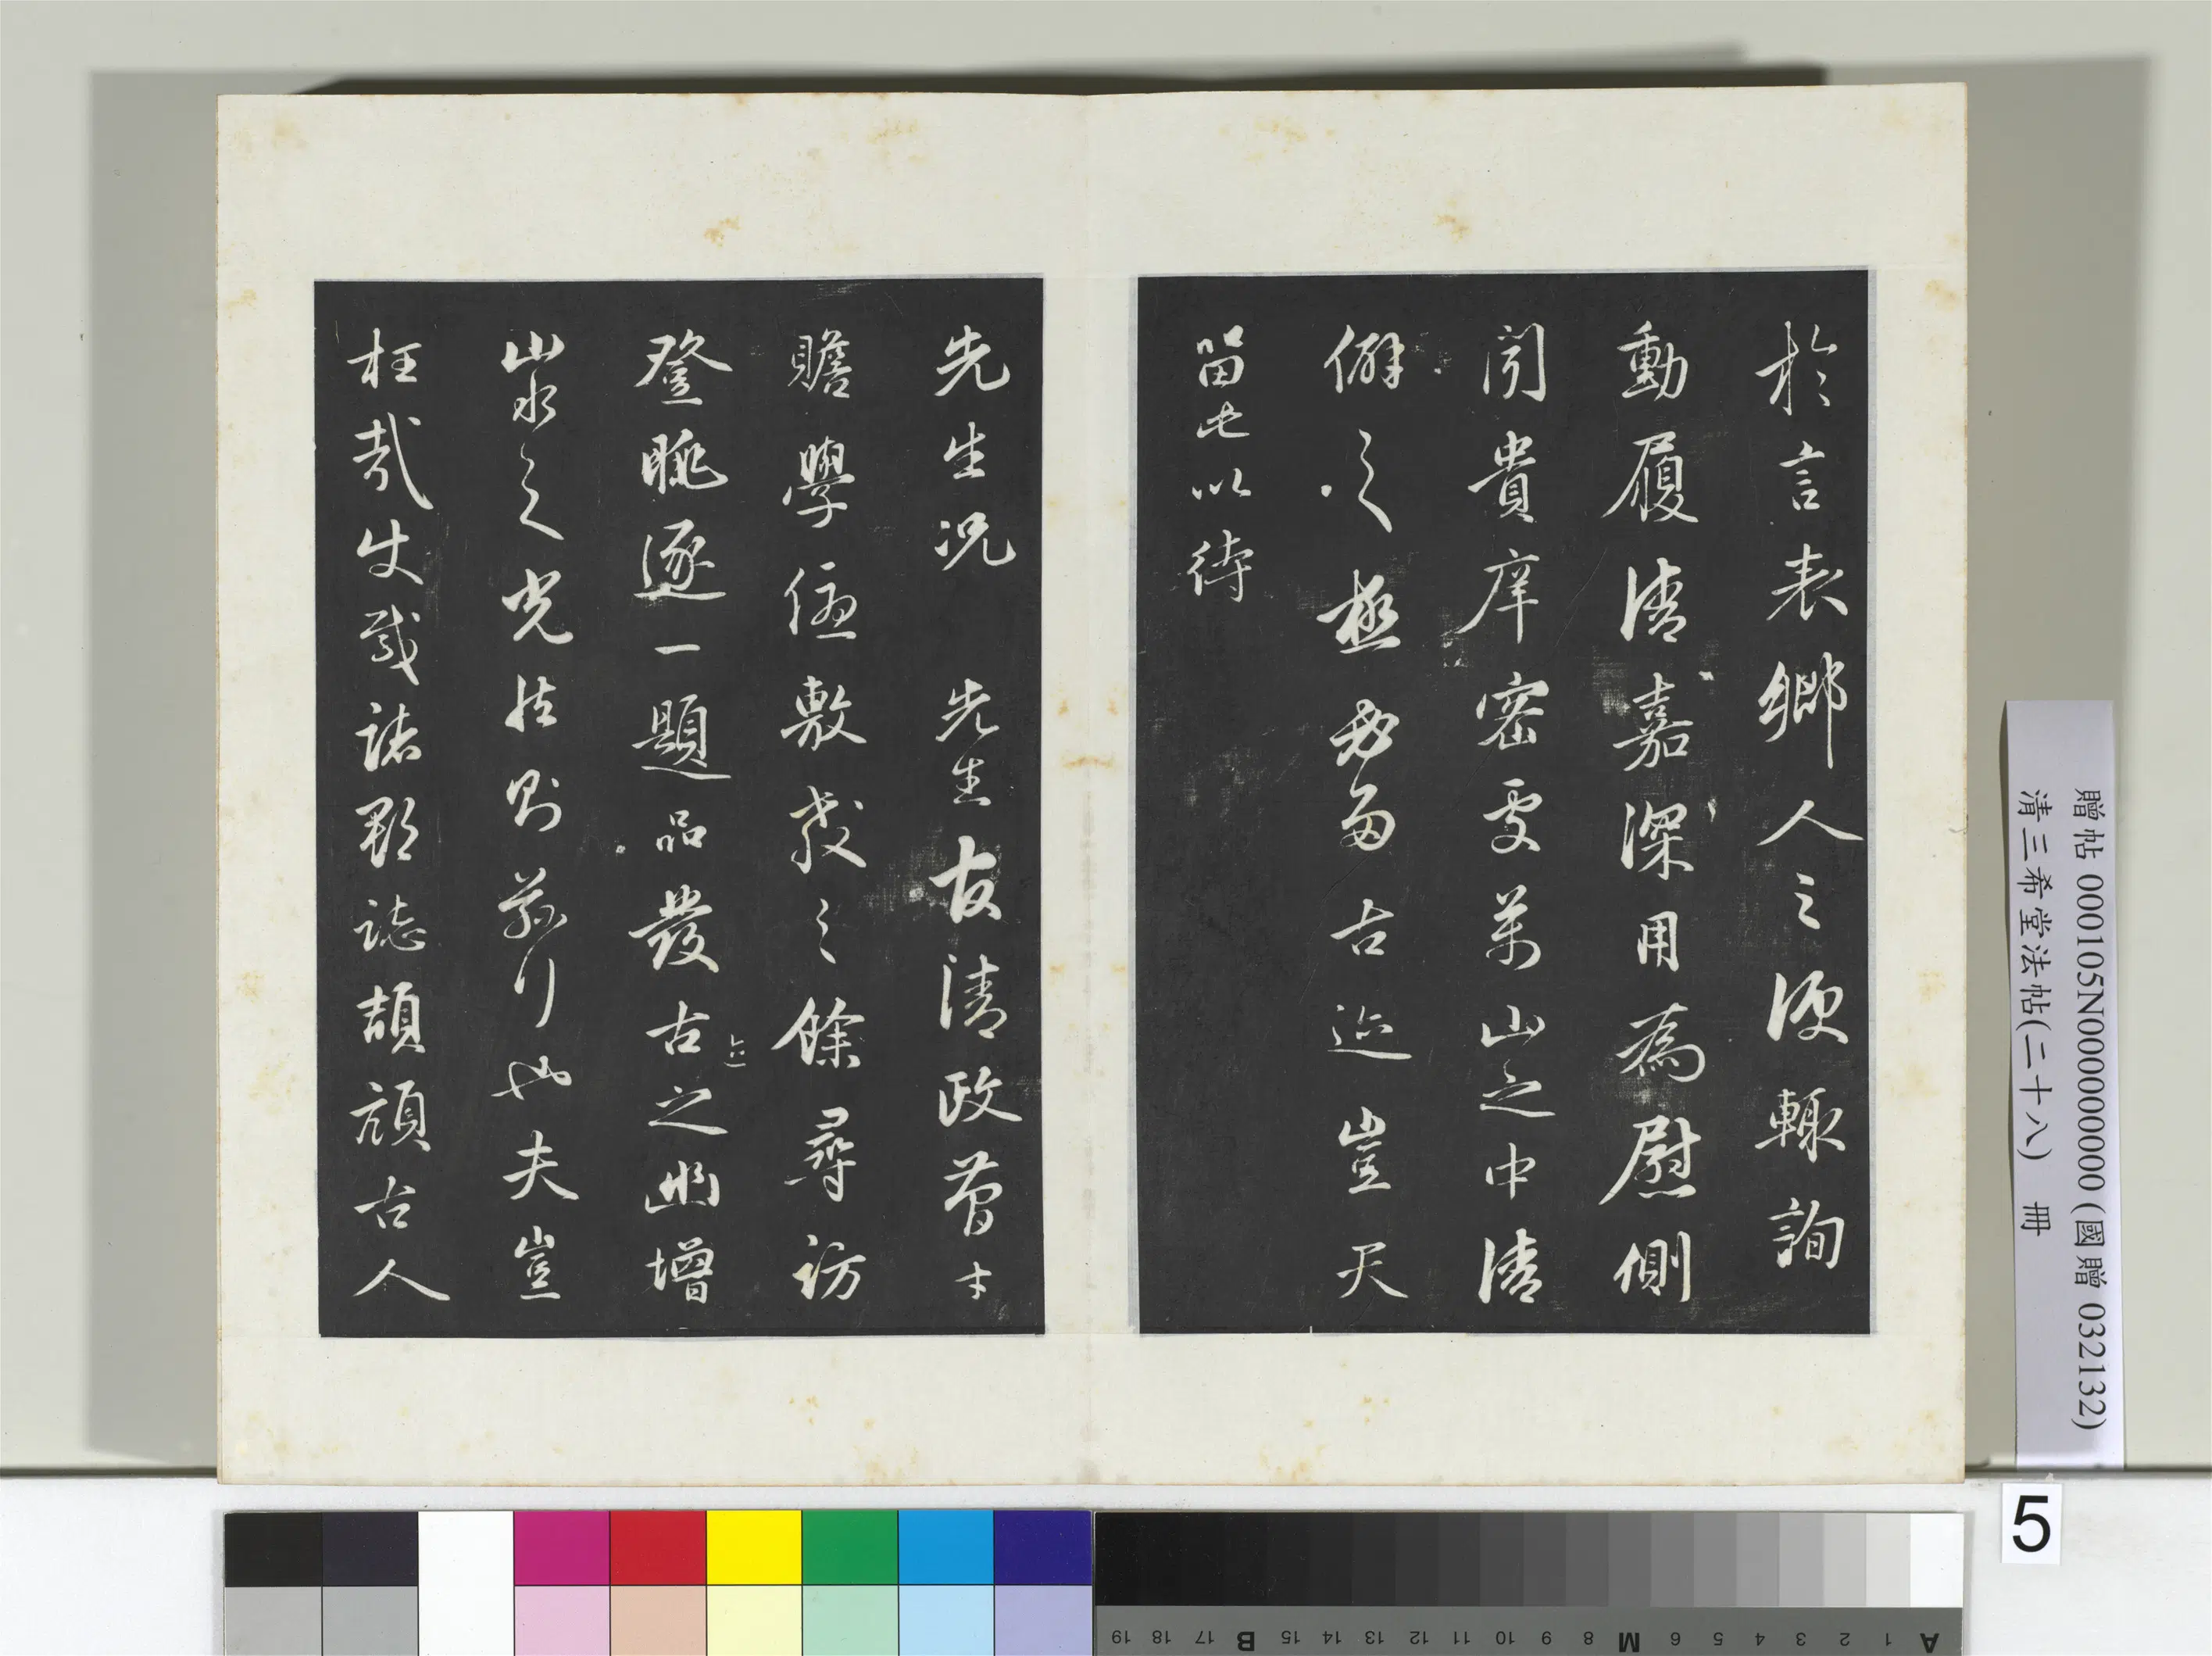 於言表鄉人之便輒詢
動履清嘉深用為慰側
聞貴庠密爾萬山之中清
僻之極勝多古迹豈天
留此以待
先生況 先生友清政簡才
贍學優敷教之餘尋訪
登眺逐一題品發古之幽增
山水之光於斯行也夫豈
枉哉史載誌郡誌頡頏古人
贈帖 000105N000000000 (國贈 032132)
清三希堂法帖(二十八) 冊
5
A 1 2 3 4 5 6 M 8 9 10 11 12 13 14 15 B 17 18 19